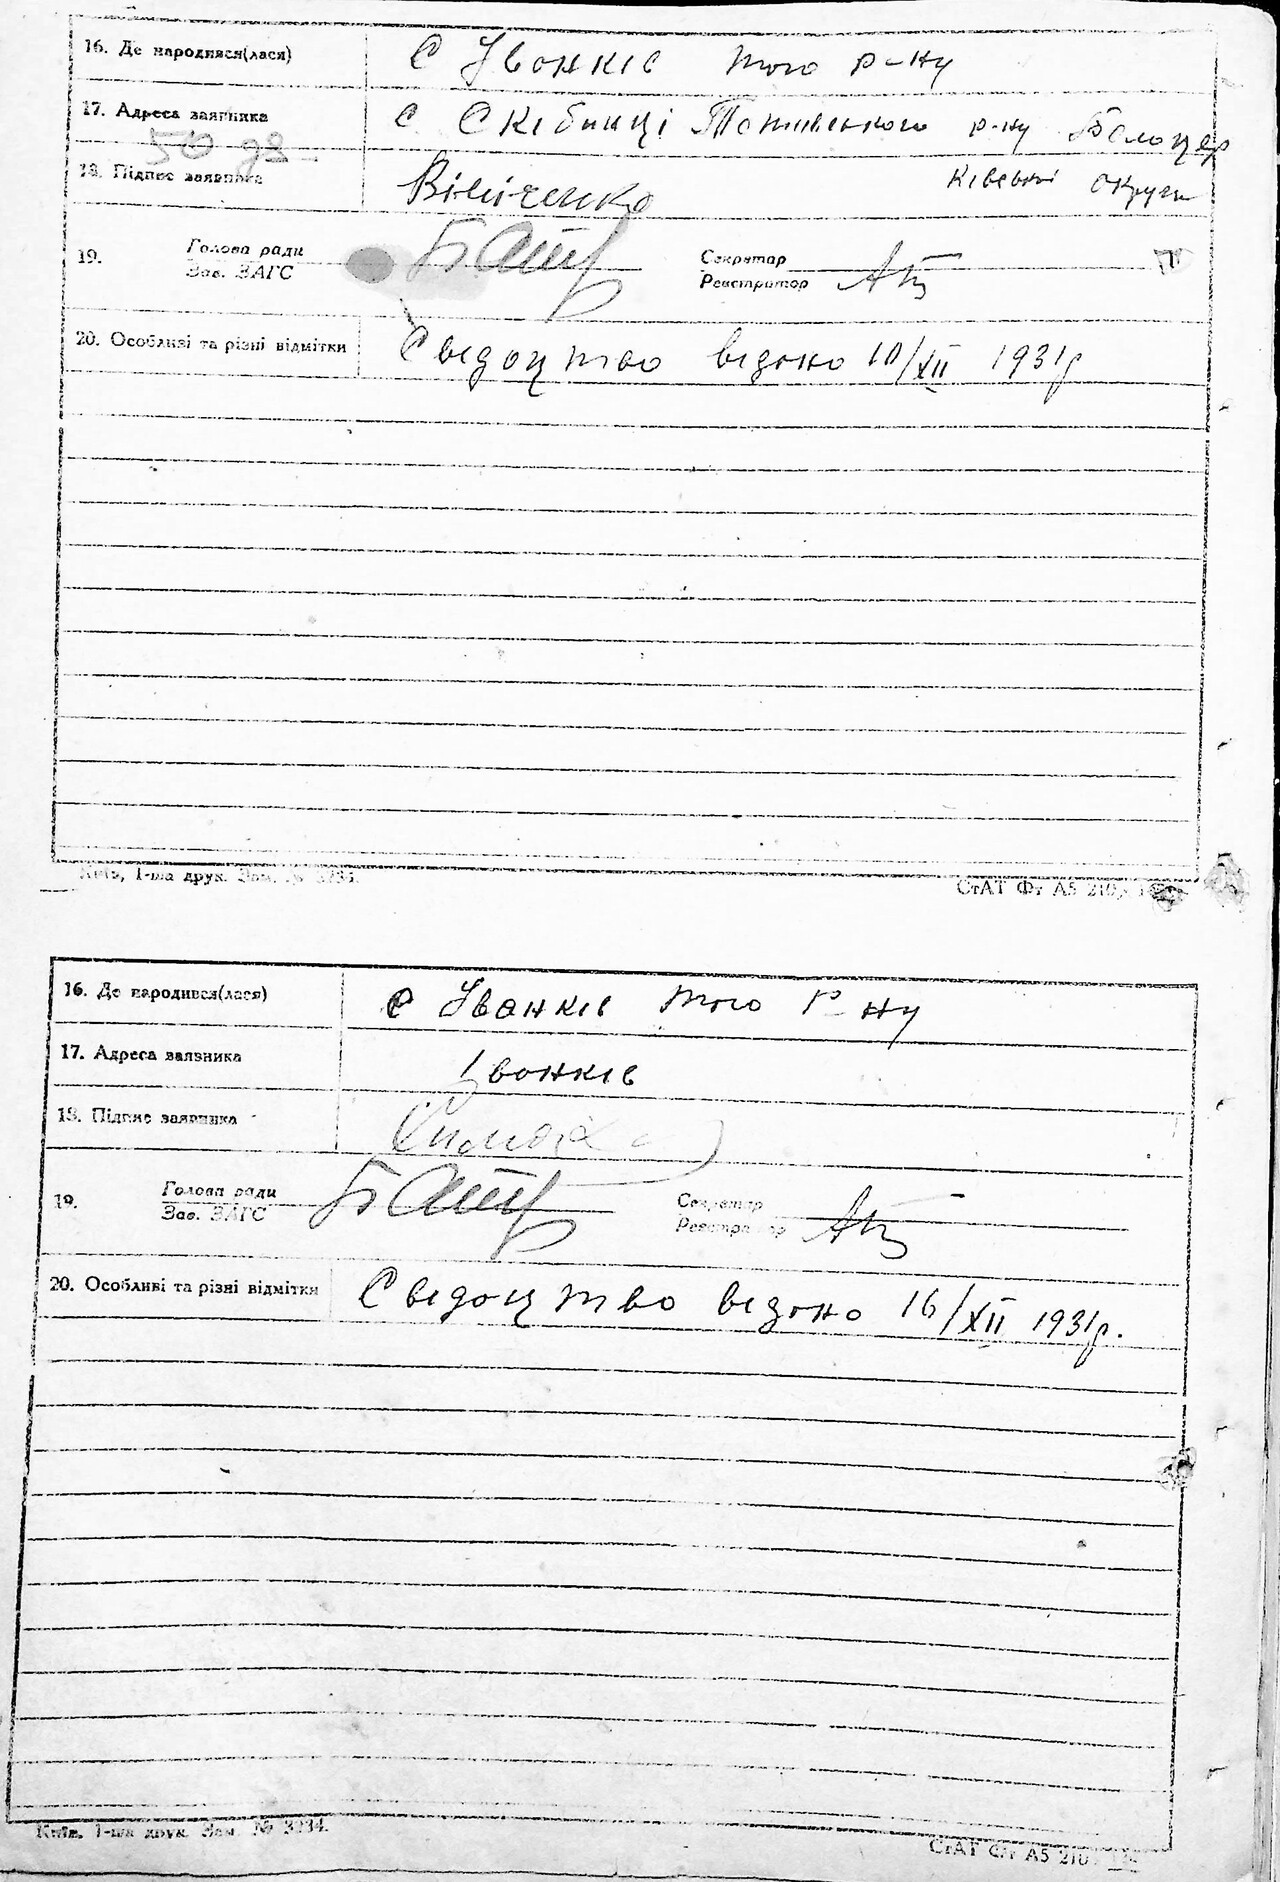 16. Де народився(лася) С Іванків того р-ну
17. Адреса заявника с Скібинці Тетіївського р-ну Білоцер
50 дв
ківської округи
18. Підпис заявника
19. Голова ради
Зав. ЗАГС
Секретар
Реєстратор
20. Особливі та різні відмітки Свідоцтво відоно 10/XII 1931р
Київ, 1-ша друк. Зам. № 3234.
СтАТ Фт А5 210
16. Де народився(лася) С Іванків того р-ну
17. Адреса заявника Іванків
18. Підпис заявника
19. Голова ради
Зав. ЗАГС
Секретар
Реєстратор
20. Особливі та різні відмітки Свідоцтво відоно 16/XII 1931р.
Київ, 1-ша друк. Зам. № 3234.
СтАТ Фт А5 210